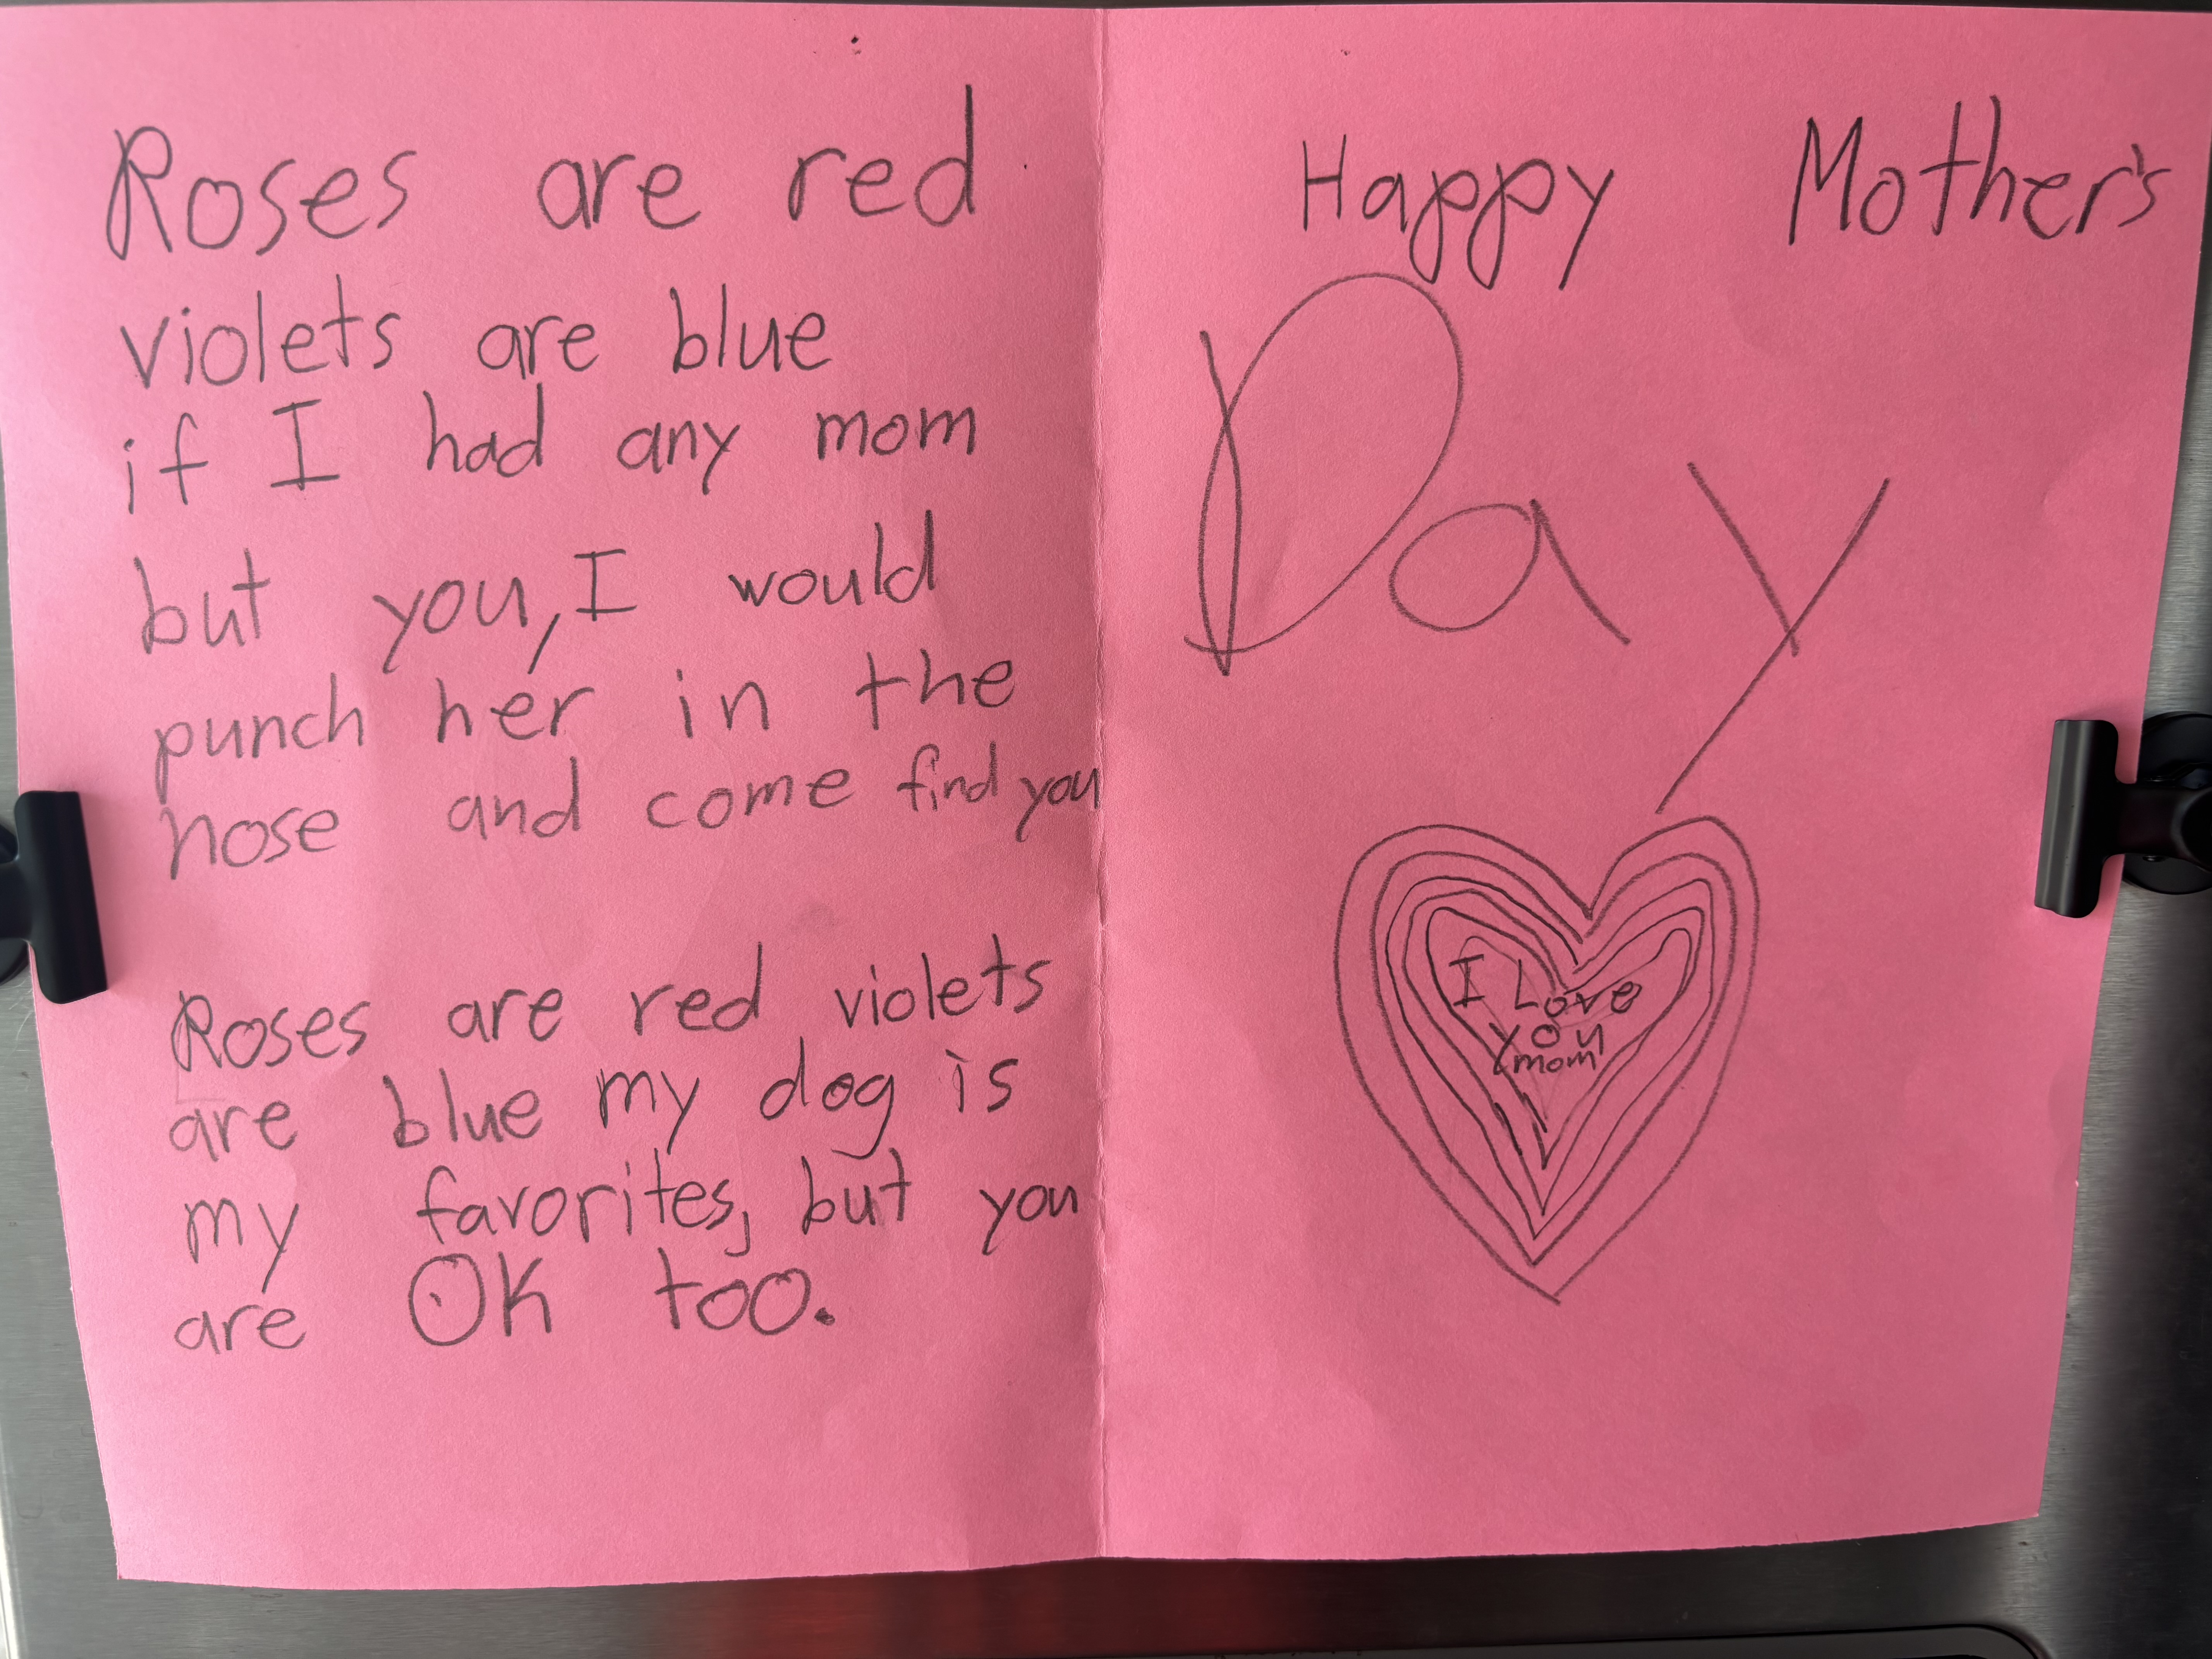 Roses are red
violets are blue
if I had any mom
but you, I would
punch her in the
nose and come find you
Roses are red violets
are blue my dog is
my favorites, but you
are OK too.
Happy Mother's
Day
I Love
you
mom